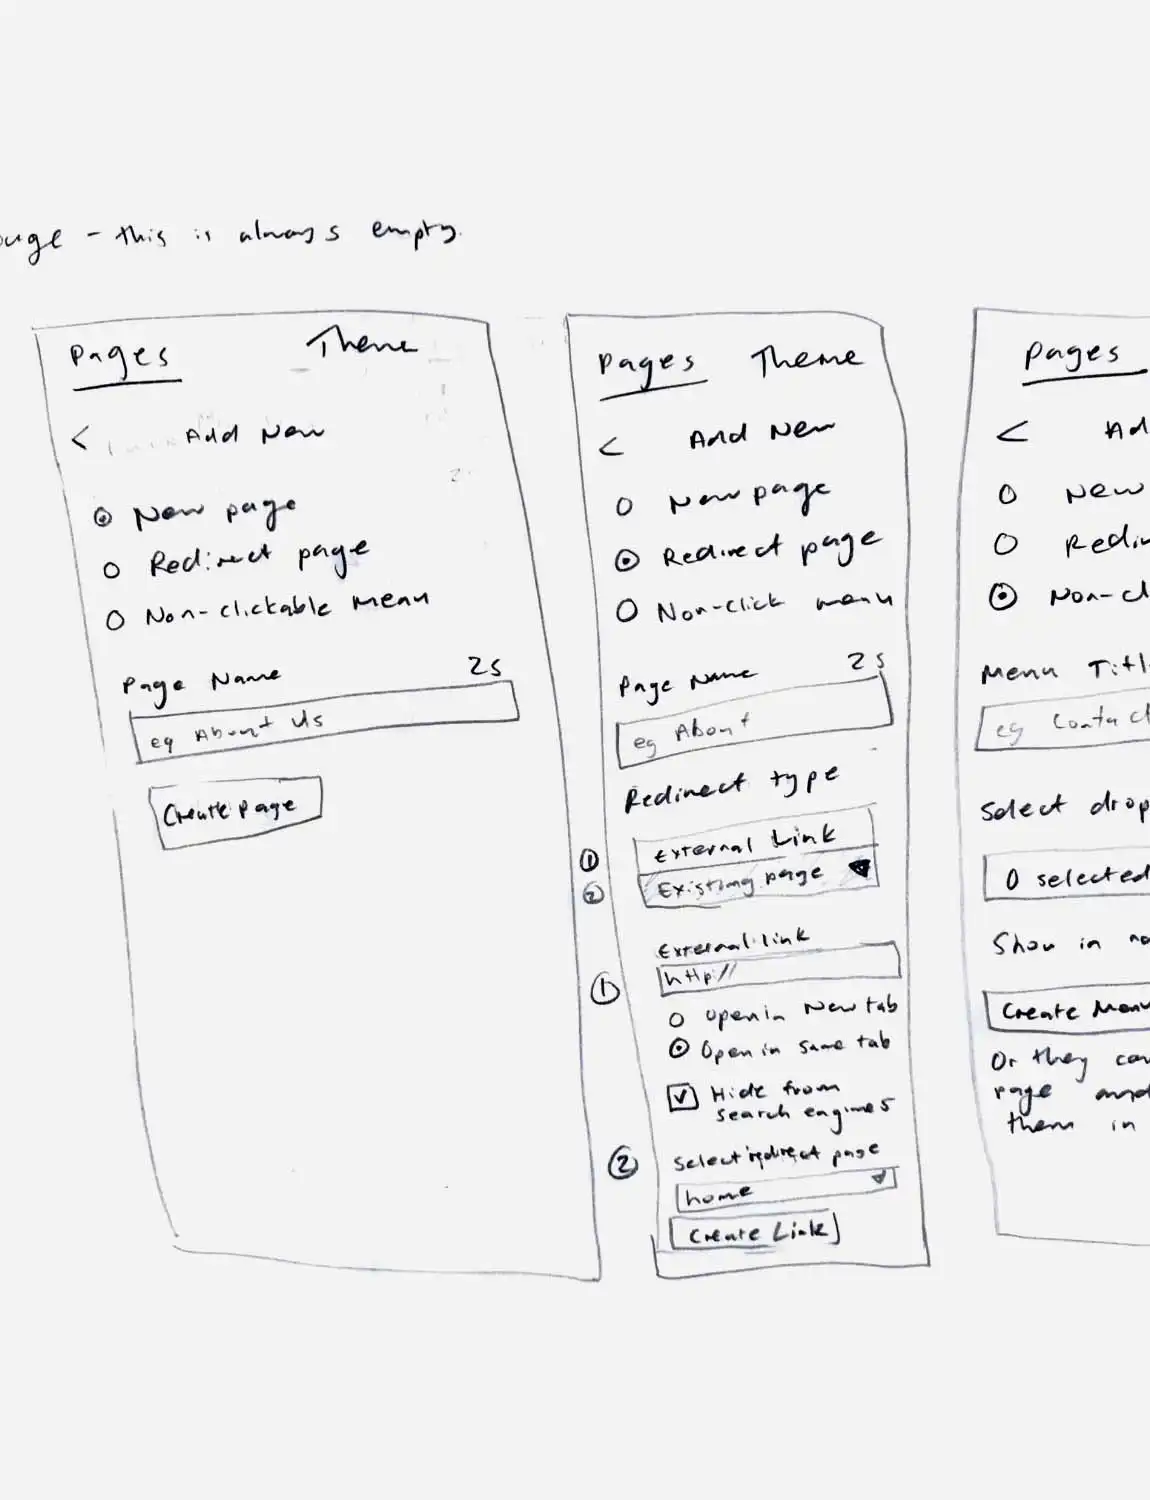 - this is always empty.
Pages Theme
< Add New
New page
Redirect page
Non-clickable menu
Page Name 25
eg About Us
Create page
Pages Theme
< Add New
New page
Redirect page
Non-click menu
Page Name 25
eg About
Redirect type
① External Link
② Existing page
External link
① http://
Open in New tab
Open in same tab
Hide from
search engines
② Select redirect page
home
Create Link
Pages
< Ad
New
Redir
Non-cl
Menu Titl
eg Contact
Select drop
0 selected
Show in
Create Menu
Or they can
page and
them in